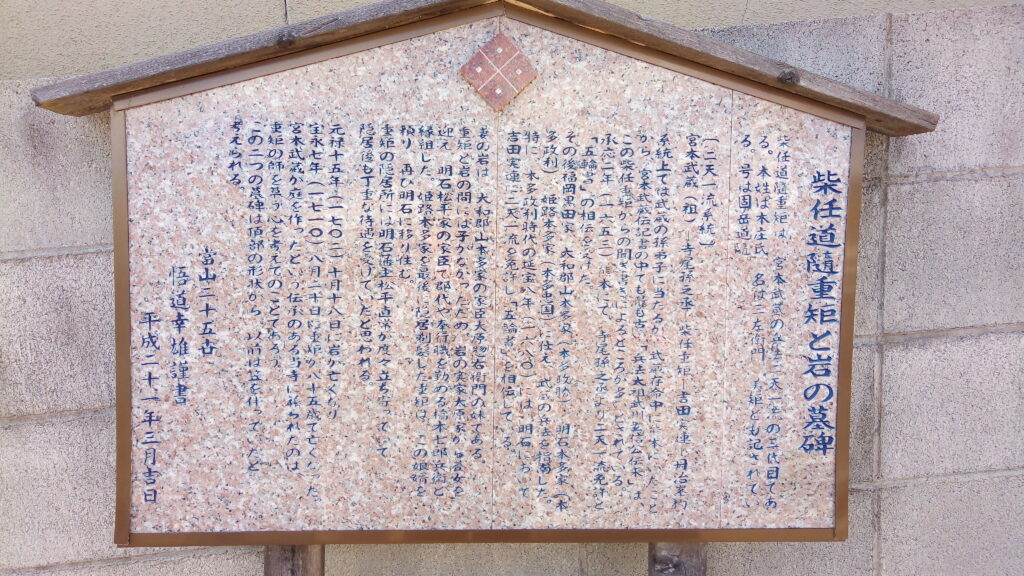 柴任道隨重矩と岩の墓碑
柴任道隨重矩は、宮本武蔵の兵法二天一流の三代目であ
る。本姓は本庄氏、名は三左衛門、美矩とも記されてい
る。号は固岳道隨
(二天一流系統)
宮本武蔵(祖)
系統上では武蔵の孫弟子に当たるが、武蔵在命中に入門したこと
から、宮本武蔵伝記書の中でも最も古い「兵法大祖武州玄信公伝来」は
この柴任重矩からの聞き書きによるところが多いとされている。
承応二年(一六五三)
「五輪書」の相伝を受けた。
その後福岡黒田家、大和郡山本多家(本多政勝)、明石本多家(本
多政利)、姫路本多家(本多忠国)に仕え、武蔵の兵法を指南した
特に、本多政利時代の延宝八年(一六八〇)には、明石において
吉田実連に二天一流を免許し「五輪書」を相伝している。
妻の岩は、大和郡山本多家の家臣大原惣右衛門の妹である。
重矩と岩の間には子がなかったため、岩の実家大原家から養女を
迎え、明石松平家の家臣で郡代や奉行職を勤める橋本七郎兵衛と
縁組した。姫路本多家を最後に隠居剃髪した重矩は、この娘婿を
頼り、再び明石に移り住む。
重矩の隠居所には明石藩主松平直常が度々立ち寄っていて
隠居後も丁重な待遇を受けていたと思われる。
元禄十五年(一七〇二)十月十八日に岩が亡くなり
宝永七年(一七一〇)八月二十日に重矩が八十五歳で亡くなった。
宮本武蔵が庭を作ったという伝承のある当寺に葬られたのは、
重矩の師を慕う心を考えてのことであろう。
この二つの墓碑は頂部の形状から、以前は笠を伴っていたと
考えられる。
當山二十五世
悟道幸雄謹書
平成二十一年三月吉日